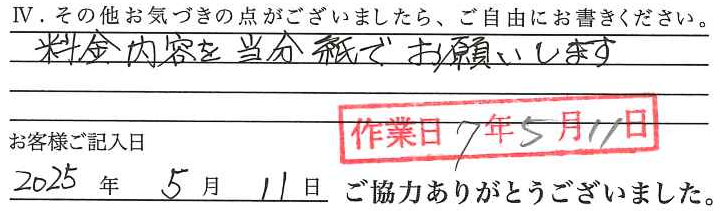 Ⅳ. その他お気づきの点がございましたら、ご自由にお書きください。
料金内容を当分紙でお願いします
作業日 7年5月11日
お客様ご記入日
2025 年 5 月 11 日 ご協力ありがとうございました。